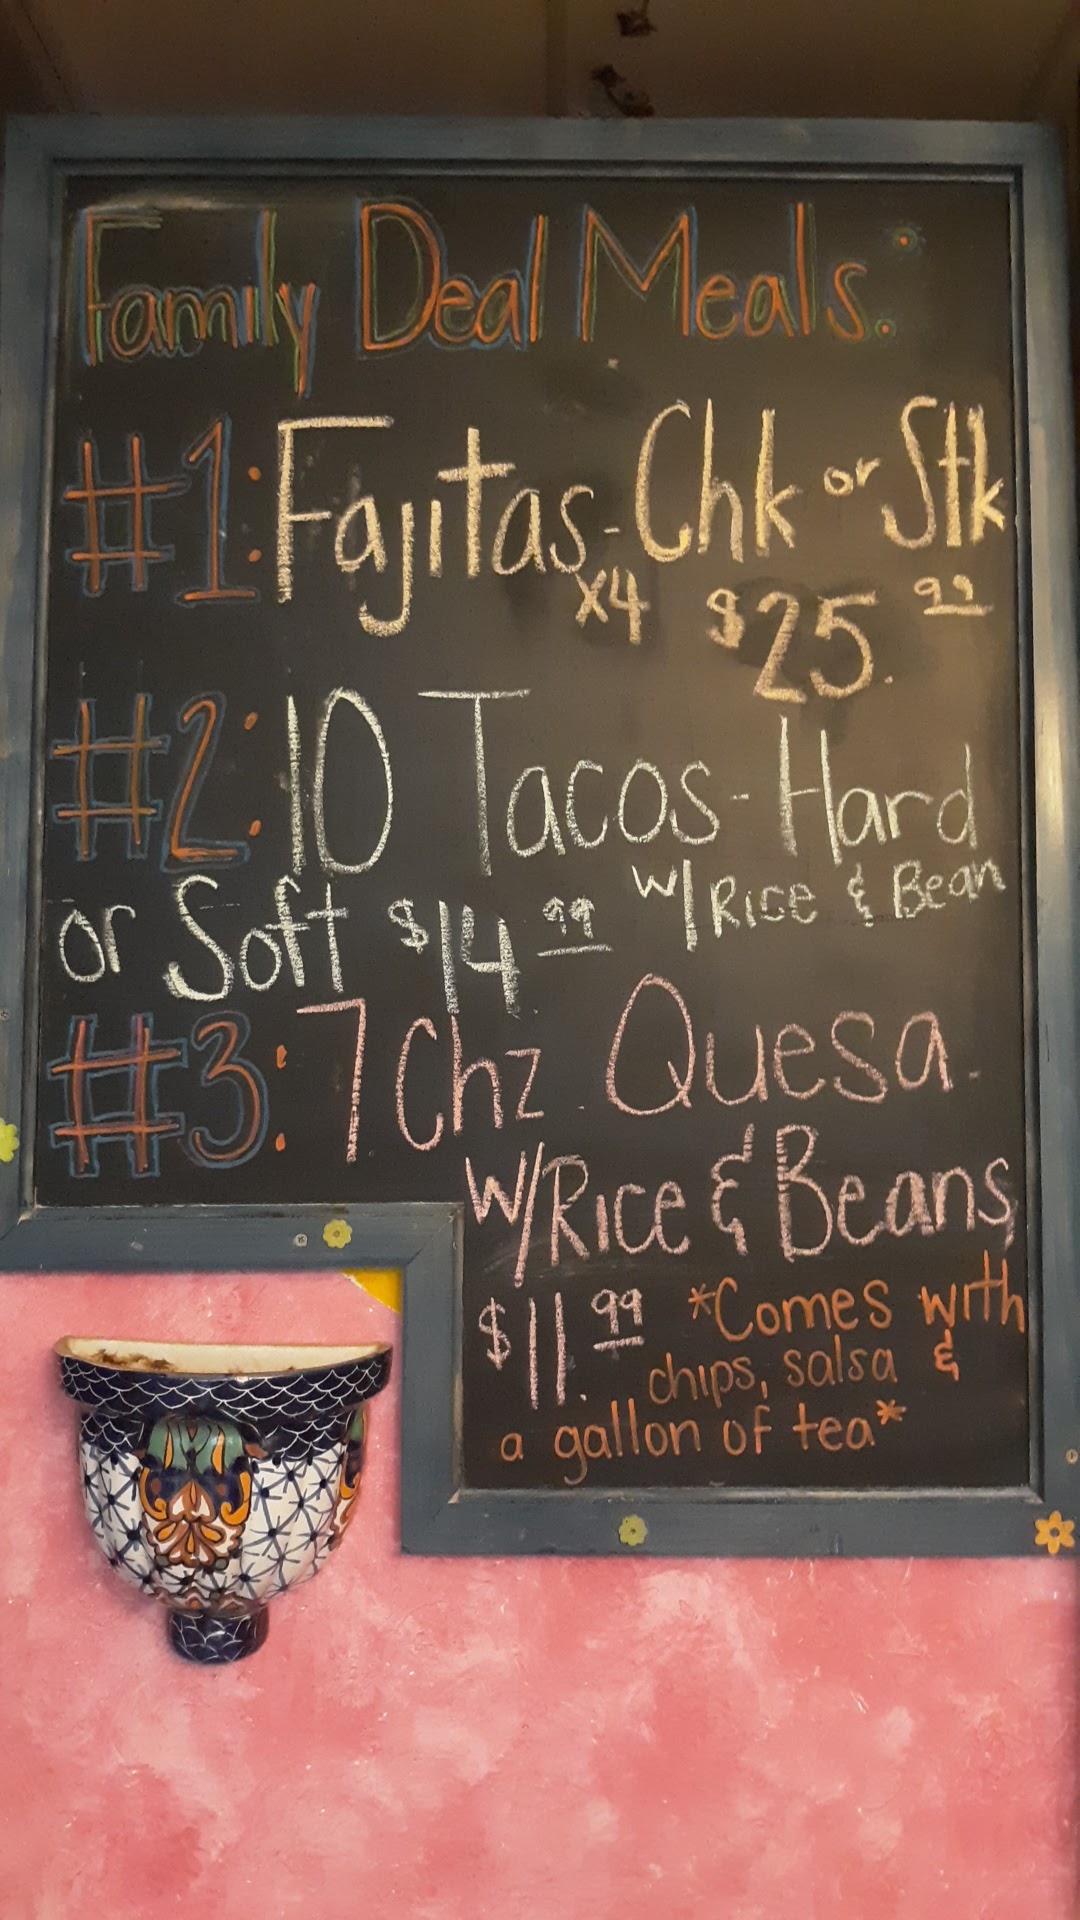 Family Deal Meals:
#1: Fajitas-Chk or Stk
x4 $25.99
#2: 10 Tacos-Hard
or Soft $14.99 w/Rice & Bean
#3: 7 Chz. Quesa.
w/Rice & Beans
$11.99 *Comes with
chips, salsa &
a gallon of tea*